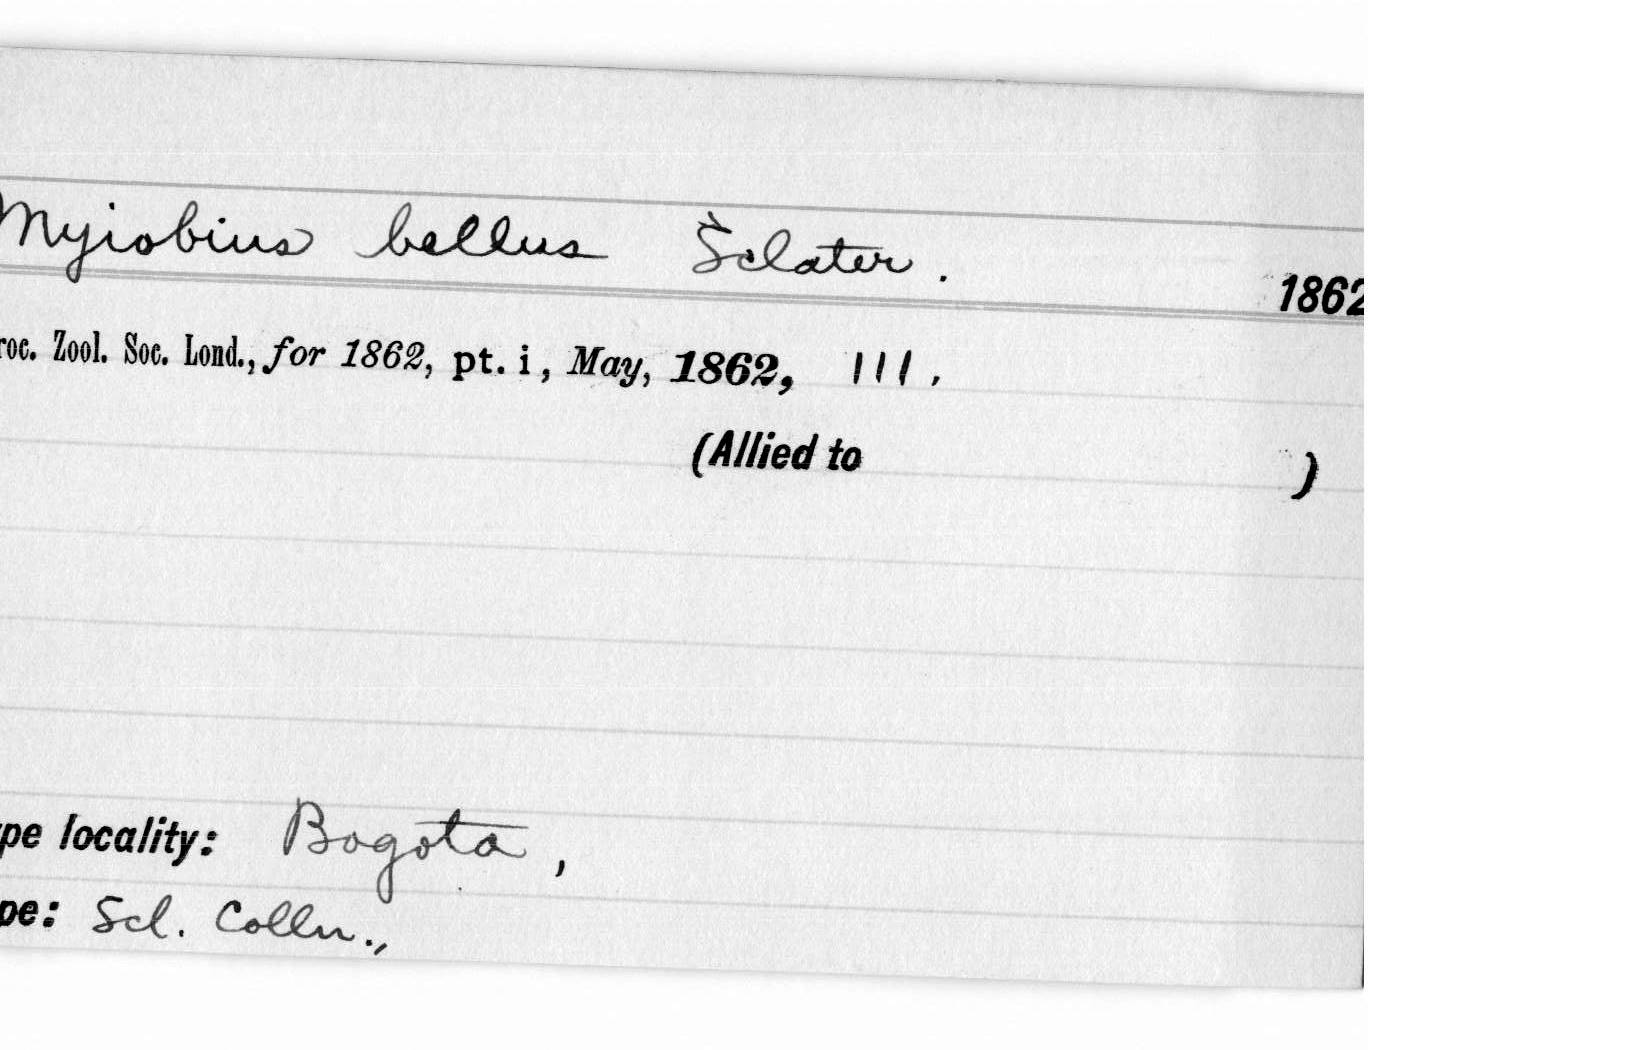 Myiobius bellus Sclater.
1862
roc. Zool. Soc. Lond., for 1862, pt. i, May, 1862, 111.
(Allied to )
pe locality: Bogota,
pe: Scl. Colln.,